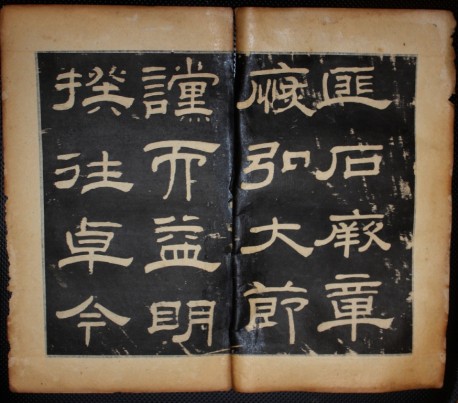 匪石厥章
恢弘大節
讜而益明
揆往卓今